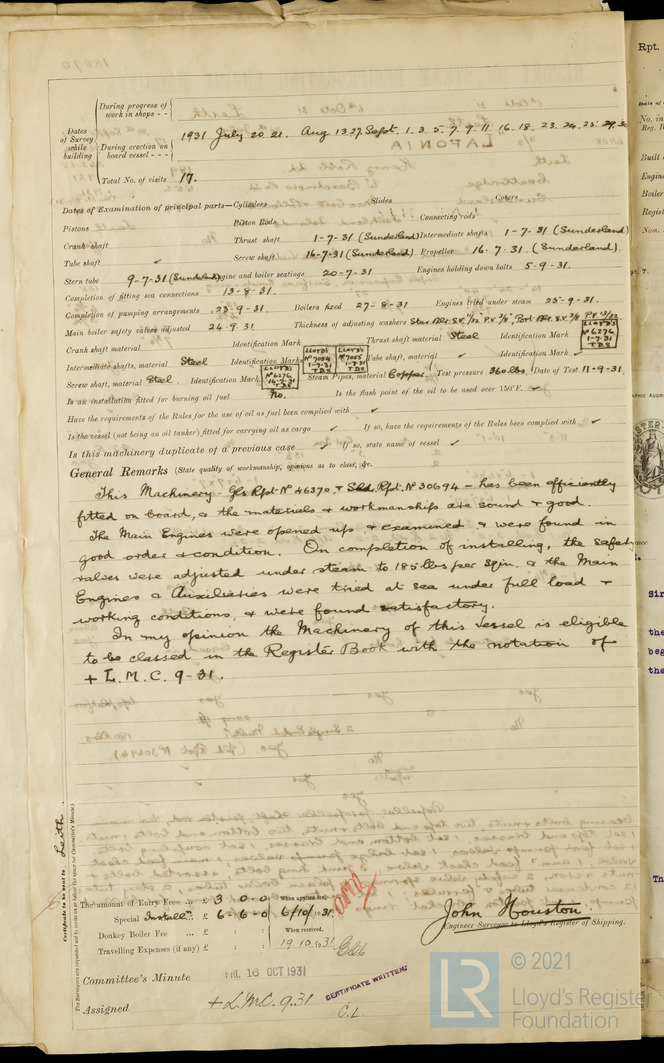 During progress of
work in shops - -
Dates
of Survey
while
building
During erection on
board vessel - - -
1931 July 20 21. Aug 13 27 Sept. 1. 3. 5. 7. 9. 11 16. 18. 23. 24. 25.
Total No. of visits 17.
Dates of Examination of principal parts—Cylinders Slides Covers
Pistons Piston Rods Connecting rods
Crank shaft Thrust shaft 1-7-31 (Sunderland) Intermediate shafts 1-7-31 (Sunderland)
Tube shaft ✓ Screw shaft 16-7-31 (Sunderland) Propeller 16.7.31. (Sunderland)
Stern tube 9-7-31 (Sunderland) Engine and boiler seatings 20-7-31 Engines holding down bolts 5-9-31.
Completion of fitting sea connections 13-8-31.
Completion of pumping arrangements 25-9-31. Boilers fixed 27-8-31 Engines tried under steam 25-9-31.
Main boiler safety valves adjusted 24.9.31. Thickness of adjusting washers
Crank shaft material Identification Mark Thrust shaft material Steel Identification Mark LLOYD'S Nº 6276 1-7-31 T.D.S
Intermediate shafts, material Steel Identification Marks LLOYD'S 1-7-31 T.D.S LLOYD'S 1-7-31 T.D.S Tube shaft, material ✓ Identification Mark ✓
Screw shaft, material Steel Identification Mark LLOYD'S Nº 6276 16-7-31 T.D.S Steam Pipes, material Copper. Test pressure 360 lbs. Date of Test 11-9-31.
Is an installation fitted for burning oil fuel No. Is the flash point of the oil to be used over 150°F. ✓
Have the requirements of the Rules for the use of oil as fuel been complied with ✓
Is the vessel (not being an oil tanker) fitted for carrying oil as cargo ✓ If so, have the requirements of the Rules been complied with ✓
Is this machinery duplicate of a previous case ✓ If so, state name of vessel ✓
General Remarks (State quality of workmanship, opinions as to class, &c.
This Machinery - Gls Rpt. Nº 46370, & Sld. Rpt. Nº 30694 - has been efficiently
fitted on board, & the materials & workmanship are sound & good.
The Main Engines were opened up & examined & were found in
good order & condition. On completion of installing, the safety
valves were adjusted under steam to 185 lbs per sq in. & the Main
Engines & Auxiliaries were tried at sea under full load &
working conditions, & were found satisfactory.
In my opinion the Machinery of this vessel is eligible
to be classed in the Register Book with the notation of
+ L.M.C. 9-31.
Certificate to be sent to Leith.
(The Surveyors are requested not to write on or below the space for Committee's Minute.)
The amount of Entry Fee ... £ 3 : 0 : 0 When applied for,
Special Install. : £ 6 - 6 - 0 6/10/1931.
Donkey Boiler Fee ... £ : : When received,
Travelling Expenses (if any) £ : : 19.10.1931
John Houston.
Engineer Surveyor to Lloyd's Register of Shipping.
Committee's Minute FRI. 16 OCT 1931
CERTIFICATE WRITTEN
Assigned + L.M.C. 9.31
C.L
LR
© 2021
Lloyd's Register
Foundation
Rpt.